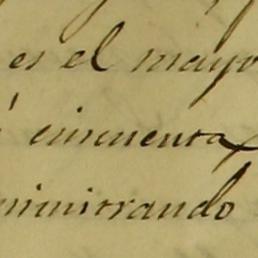 es el mayo
cincuenta
ministrando